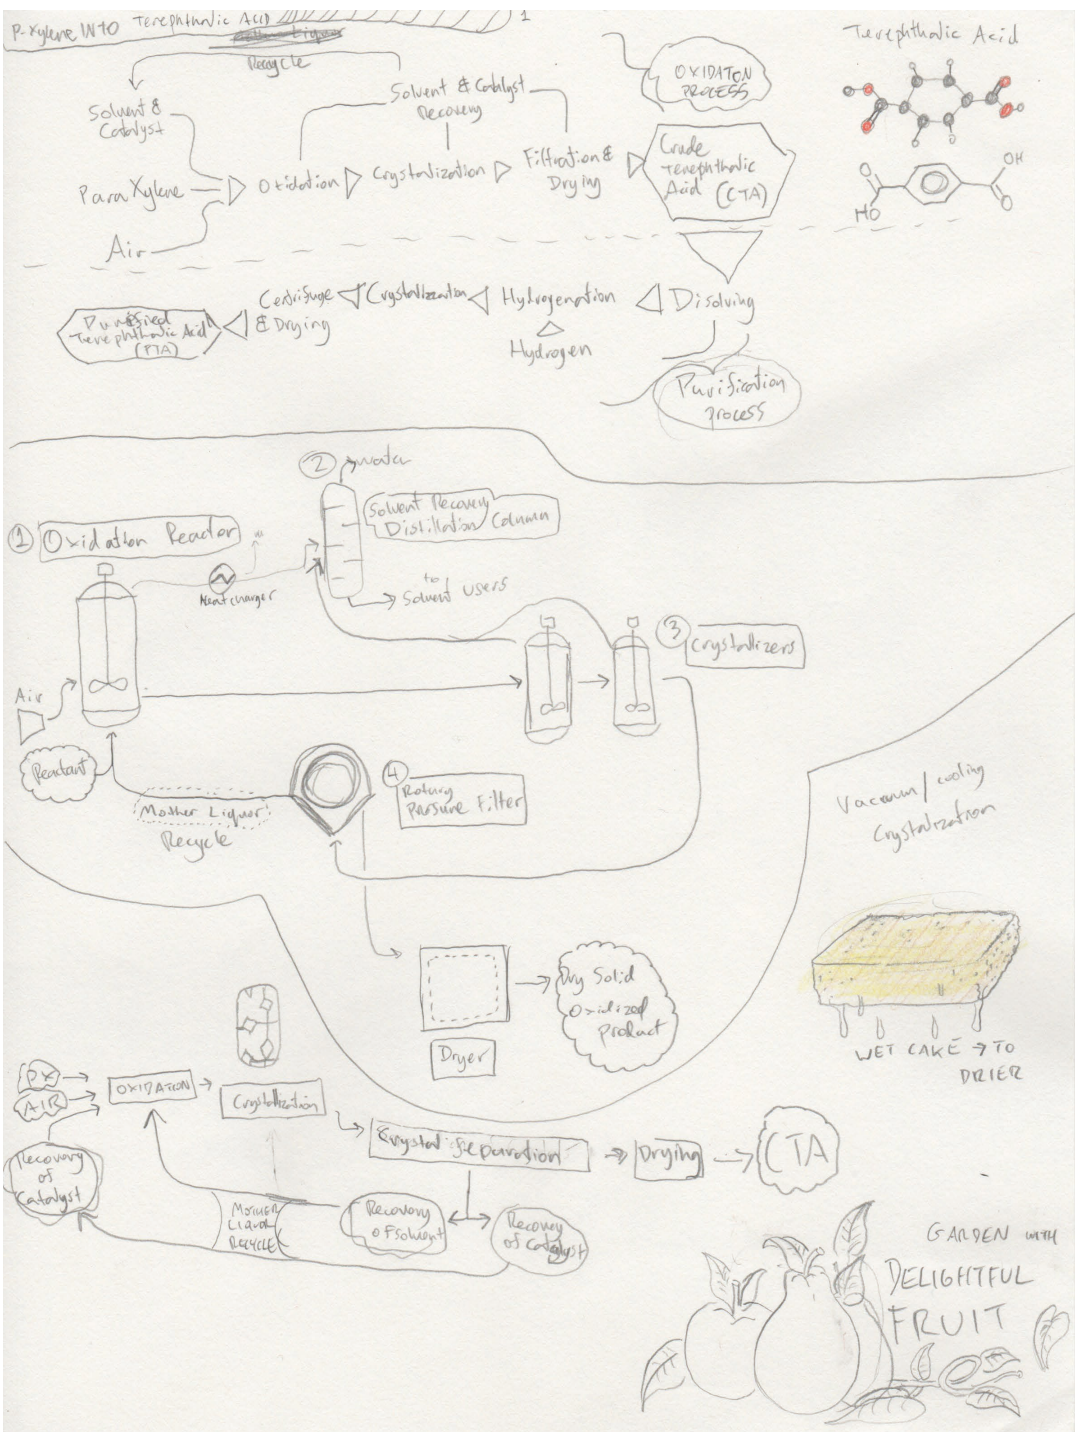 P-Xylene INTO Terephthalic Acid
1
Recycle
Solvent &
Catalyst
Solvent & Catalyst
Recovery
Para Xylene
Oxidation
Crystalization
Filtration &
Drying
Air
OXIDATON
PROCESS
Crude
Terephthalic
Acid
(CTA)
Terephthalic Acid
OH
O
O
HO
Disolving
Hydrogenation
Hydrogen
Crystallization
Centrifuge
& Drying
Purified
Terephthalic Acid
(PTA)
Purification
process
1 Oxidation Reactor
2
Water
Solvent Recovery
Distillation Column
Heatcharger
to
Solvent users
3
Crystallizers
Air
Reactant
Mother Liquor
Recycle
4
Rotary
Parsure Filter
Vacuum/cooling
Crystalization
Dryer
Dry Solid
Oxidized
Product
WET CAKE → TO
DRIER
PX
AIR
OXIDATION
Crystallization
Crystal Separation
Drying
CTA
Recovery
of
Catalyst
MOTHER
LIQUOR
RECYCLE
Recovery
of Solvent
Recovery
of Catalyst
GARDEN WITH
DELIGHTFUL
FRUIT